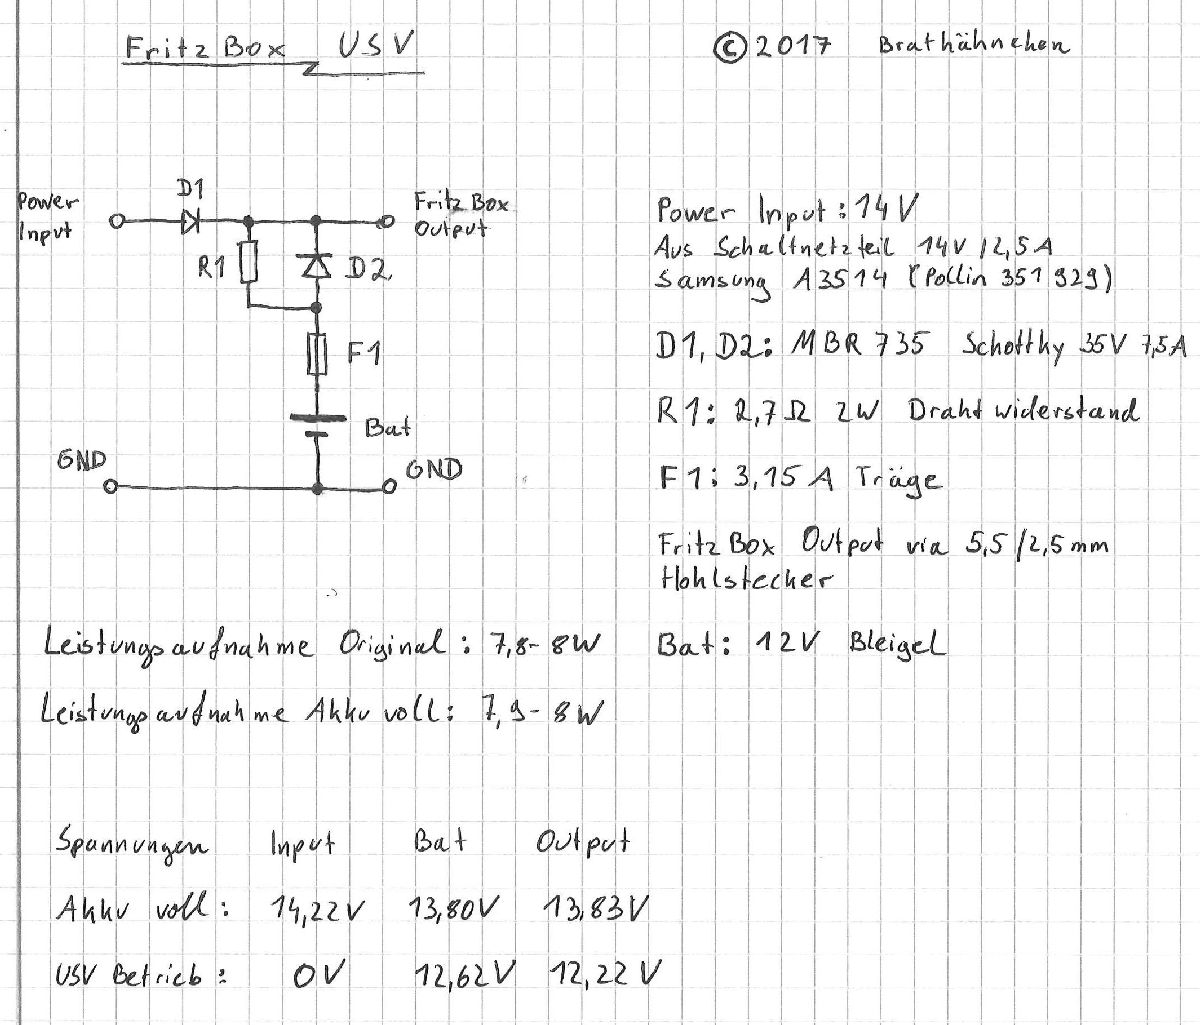 Fritz Box USV
© 2017 Brathähnchen
Power
Input
D1
Fritz Box
Output
R1
D2
F1
Bat
GND
GND
Power Input: 14V
Aus Schaltnetzteil 14V/2,5A
Samsung A3514 (Pollin 351 929)
D1, D2: MBR 735 Schottky 35V 7,5A
R1: 2,7Ω 2W Drahtwiderstand
F1: 3,15 A Träge
Fritz Box Output via 5,5/2,5mm
Hohlstecker
Bat: 12V Bleigel
Leistungsaufnahme Original: 7,8-8W
Leistungsaufnahme Akku voll: 7,9-8W
Spannungen Input Bat Output
Akku voll: 14,22V 13,80V 13,83V
USV Betrieb: 0V 12,62V 12,22V